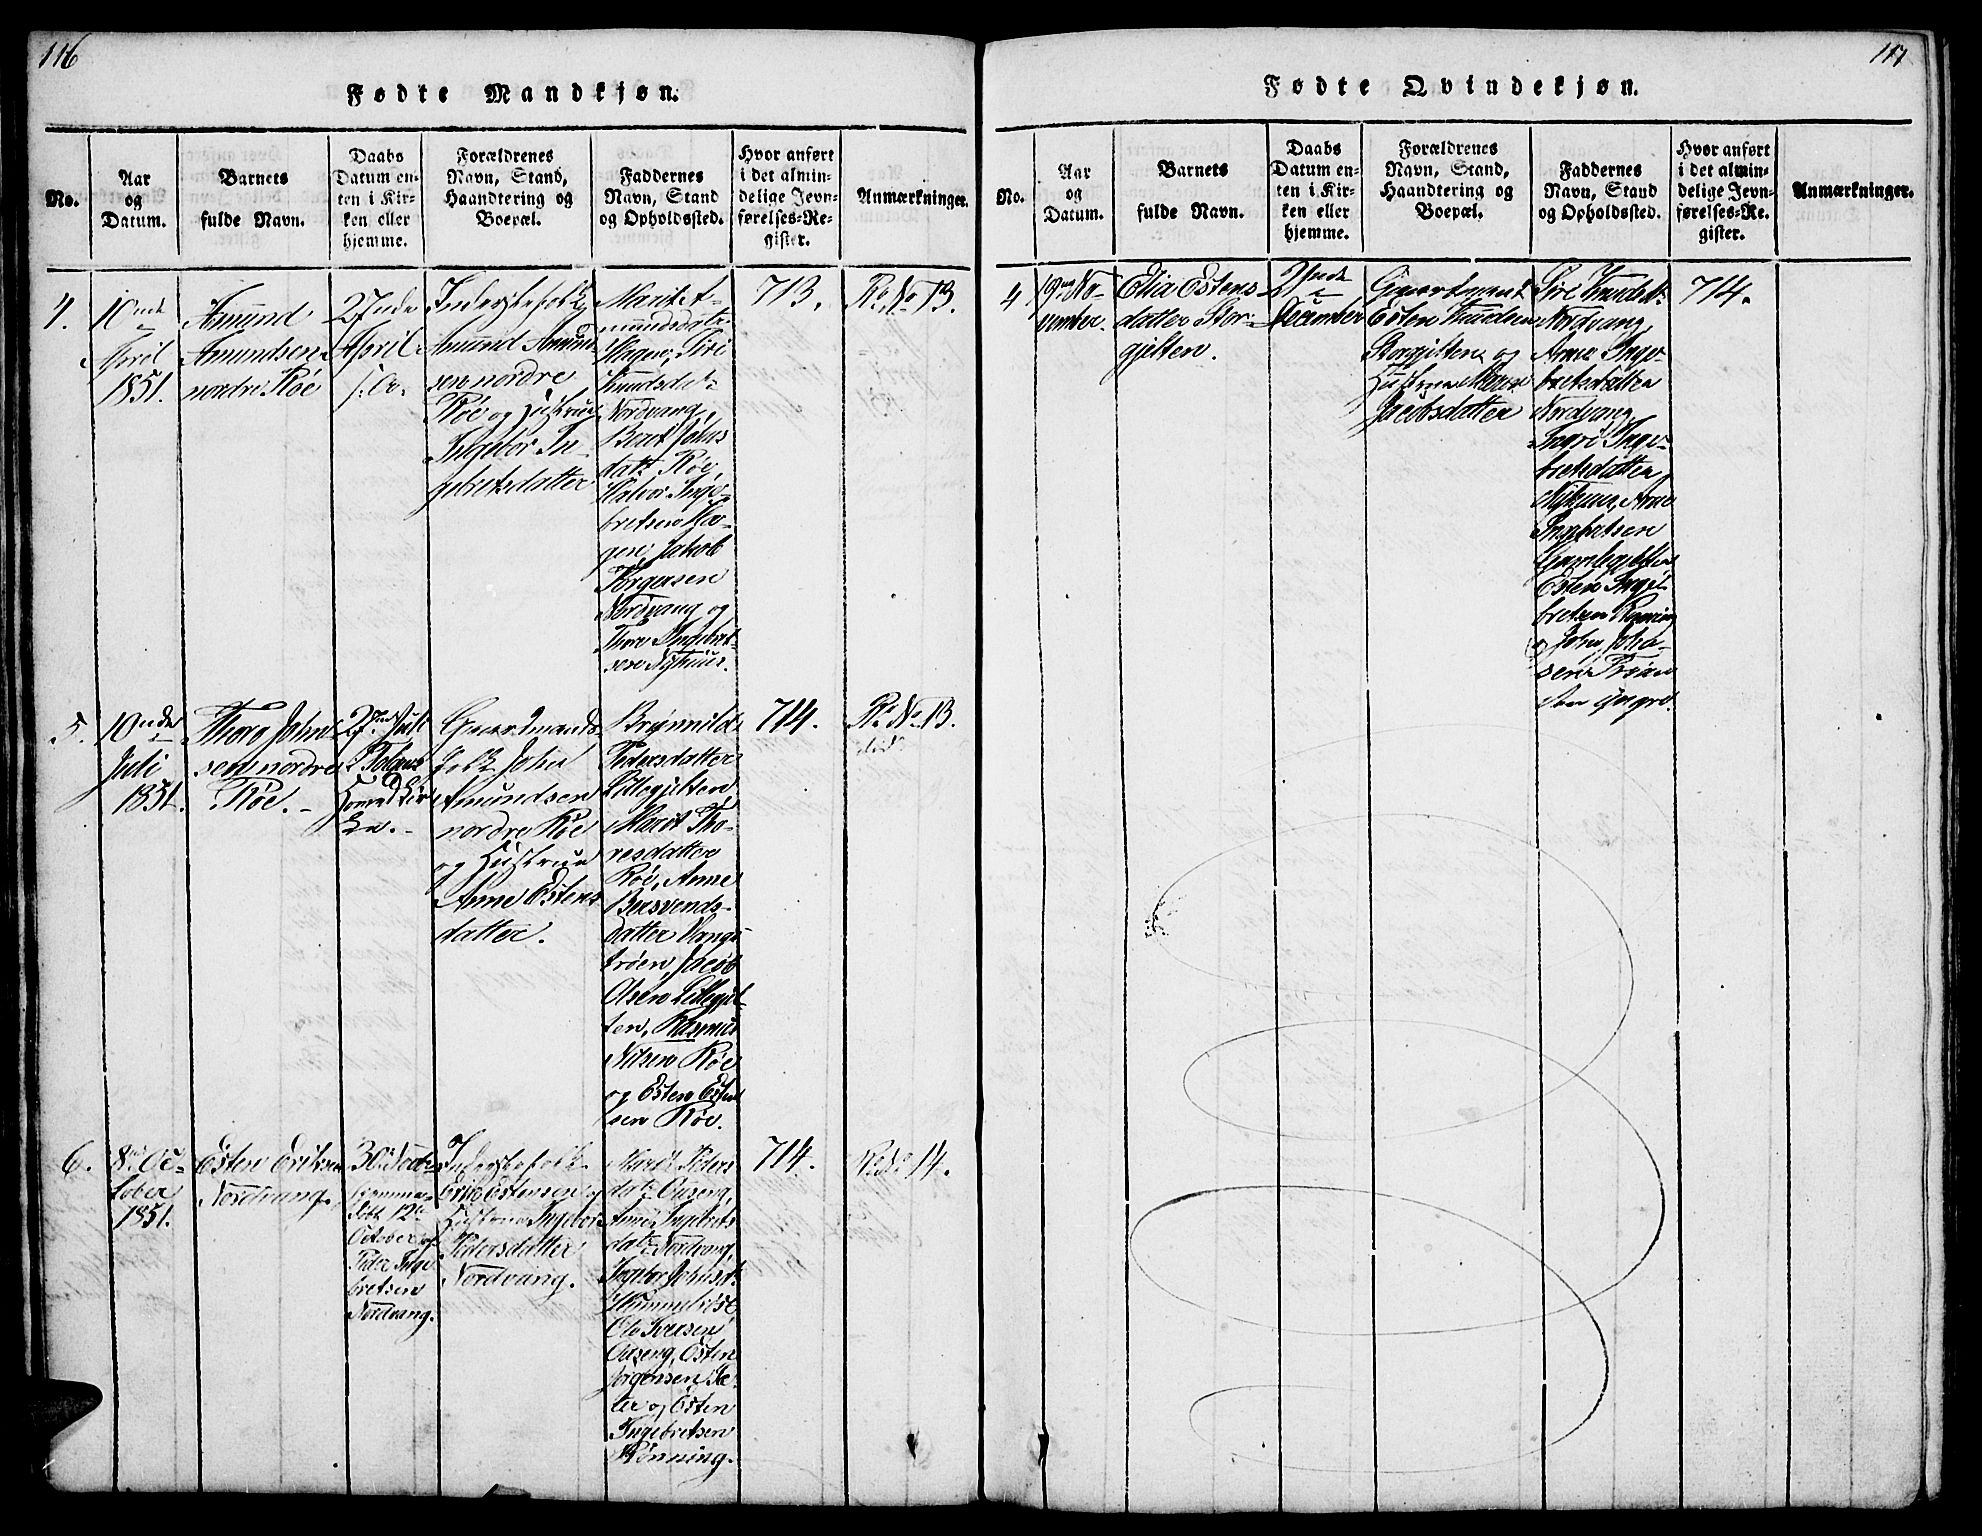 116
Fødte Mandkjøn.
No.
Aar
og
Datum.
Barnets
fulde Navn.
Daabs
Datum en-
ten i Kir-
ken eller
hjemme.
Forældrenes
Navn, Stand,
Haandtering og
Boepæl.
Faddernes
Navn, Stand
og Opholdssted.
Hvor anført
i det almin-
delige Jevn-
førelses-Re-
gister.
Anmærkninger.
4.
10nde
April
1851.
Amund
Amundsen
nordre Røe
27nde
April
Inderstefolk
Amund Amund-
sen nordre
Røe og Hustrue
Ingebor In-
gebretsdatter
Marit A-
mundsdatr
Siri
Knudsdatr
Nordvang,
Berit Johns
datr Røe,
Halvor Inge-
bretsen Mo-
gen, Jakob
Jørgensen
Nordvang og
Thore Ingebret-
sen Nyhuus.
713.
No 13.
5.
10nde
Juli
1851.
Thore John-
sen nordre
Røe.
27de Juli
Tolgens
Hoved Kir-
ke.
Gaardmands-
folk John
Amundsen
nordre Røe
og Hustrue
Anne Estens
datter.
Brynnild
Pedersdatter
Lillegjelten,
Marit Tho-
resdatter
Røe, Anne
Bersvends-
datter Vangs
trøen, Jacob
Olsen Lillegjel-
ten, Rasmus
Nilsen Røe
og Esten Esten
sen Røe.
714.
No 13.
6.
8de Oc-
tober
1851.
Esten Eriksen
Nordvang.
30
hjemme-
døbt 12te
October af
Peder Inge
bretsen
Nordvang.
Inderstefolk
Erik Estensen og
Hustrue Ingebor
Pedersdatter
Nordvang.
Marit Peders
datr Ouseng,
Anne Ingebrets
datr Nordvang,
Ingebor Johnsdr
Hummelvold,
Ole Iversen
Ouseng, Esten
Jørgensen
og Esten
Ingebretsen
Rønning.
714.
No 14.
117
Fødte Qvindekjøn.
No.
Aar
og
Datum.
Barnets
fulde Navn.
Daabs
Datum en-
ten i Kir-
ken eller
hjemme.
Forældrenes
Navn, Stand,
Haandtering og
Boepæl.
Faddernes
Navn, Stand
og Opholdssted.
Hvor anført
i det almin-
delige Jevn-
førelses-Re-
gister.
Anmærkninger.
4
19de No-
vember.
Elia Estens
datter Stor-
gjelten.
21nde
December
Gaardmand
Esten Knudsen
Storgjelten og
Hustrue Marit
Jacobsdatter
Siri Knudsdr
Nordvang,
Anne Inge-
bretsdatter
Nordvang,
Ingri Inge-
bretsdatter
Nyhuus, Arne
Ingebretsen
Gamlegjelten
Esten Inge-
bretsen Rønning
og John John-
sen
714.